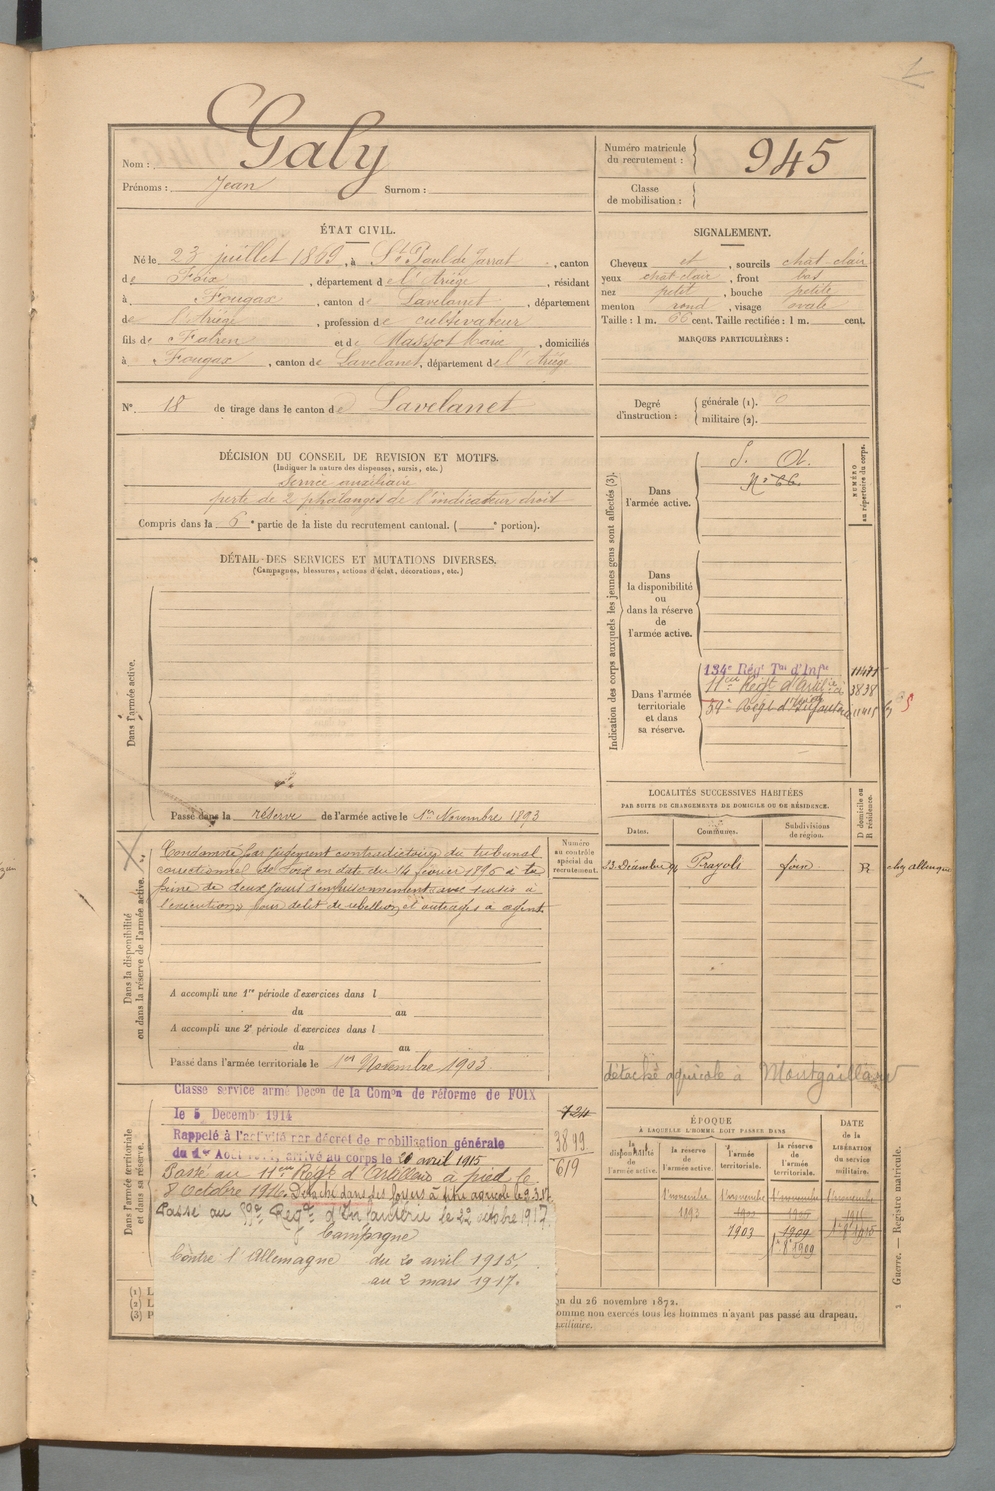 Nom : Galy
Prénoms : Jean Surnom :
Numéro matricule du recrutement : 945
Classe de mobilisation :
ÉTAT CIVIL.
Né le 23 juillet 1869, à St Paul de Jarrat, canton
de Foix, département de l'Ariège, résidant
à Fougax, canton de Lavelanet, département
de l'Ariège, profession de cultivateur
fils de et de Massot Marie, domiciliés
à Fougax, canton de Lavelanet, département de l'Ariège
N° 18 de tirage dans le canton de Lavelanet
SIGNALEMENT.
Cheveux et, sourcils chat. clair
yeux chat clair, front bas
nez petit, bouche petite
menton rond, visage ovale
Taille : 1 m. 66 cent. Taille rectifiée : 1 m. cent.
MARQUES PARTICULIÈRES :
Degré d'instruction : générale (1). 0
militaire (2).
DÉCISION DU CONSEIL DE REVISION ET MOTIFS.
(Indiquer la nature des dispenses, sursis, etc.)
Service auxiliaire
perte de 2 phalanges de l'indicateur droit
Compris dans la 6e partie de la liste du recrutement cantonal. ( e portion).
DÉTAIL DES SERVICES ET MUTATIONS DIVERSES.
(Campagnes, blessures, actions d'éclat, décorations, etc.)
Dans l'armée active.
Passé dans la réserve de l'armée active le 1er Novembre 1893
Dans la disponibilité
ou dans la réserve de l'armée active.
Condamné par jugement contradictoire du tribunal
correctionnel de Foix en date du 14 février 1896 à la
peine de deux jours d'emprisonnement avec sursis à
l'exécution, pour délit de rébellion et outrages à agent.
A accompli une 1re période d'exercices dans l
du au
A accompli une 2e période d'exercices dans l
du au
Passé dans l'armée territoriale le 1er Novembre 1903
Numéro
au contrôle
spécial du
recrutement.
Dans l'armée territoriale
et dans sa réserve.
Classé service armé Decon de la Comon de réforme de FOIX
le 5 Decemb 1914
Rappelé à l'activité par décret de mobilisation générale
du 1er Août, arrivé au corps le 20 avril 1915
Passé au 11eme Regt d'Artillerie à pied le
8 octobre 1916. Détaché dans ses foyers à titre agricole le 2.3.17
Passé au 59e Regt d'Infanterie le 22 octobre 1917.
Campagne
Contre l'Allemagne du 20 avril 1915,
au 2 mars 1917.
724
3899
619
Indication des corps auxquels les jeunes gens sont affectés (3).
NUMÉRO
au répertoire du corps.
Dans
l'armée active.
S. A.
N° 66.
Dans
la disponibilité
ou
dans la réserve
de
l'armée active.
Dans l'armée
territoriale
et dans
sa réserve.
134e Régt Tal d'Infie
11eme Regt d'Artillerie à 3838
59e Régt d'Infanterie 11415
LOCALITÉS SUCCESSIVES HABITÉES
PAR SUITE DE CHANGEMENTS DE DOMICILE OU DE RÉSIDENCE.
Dates. Communes. Subdivisions de région. D domicile ou R résidence.
13 Décembre 96 Prayols foix R
détaché agricole à Montgaillard
ÉPOQUE
À LAQUELLE L'HOMME DOIT PASSER DANS
la disponibilité de l'armée active.
la réserve de l'armée active.
l'armée territoriale.
la réserve de l'armée territoriale.
DATE
de la
LIBÉRATION
du service
militaire.
1er novembre 1er novembre 1er novembre 1er novembre
1893
1903 1909
1er 8bre 1909
(1) L
(2) L
(3) P
on du 26 novembre 1872.
omme non exercés tous les hommes n'ayant pas passé au drapeau.
uxiliaire.
Guerre. — Registre matricule.